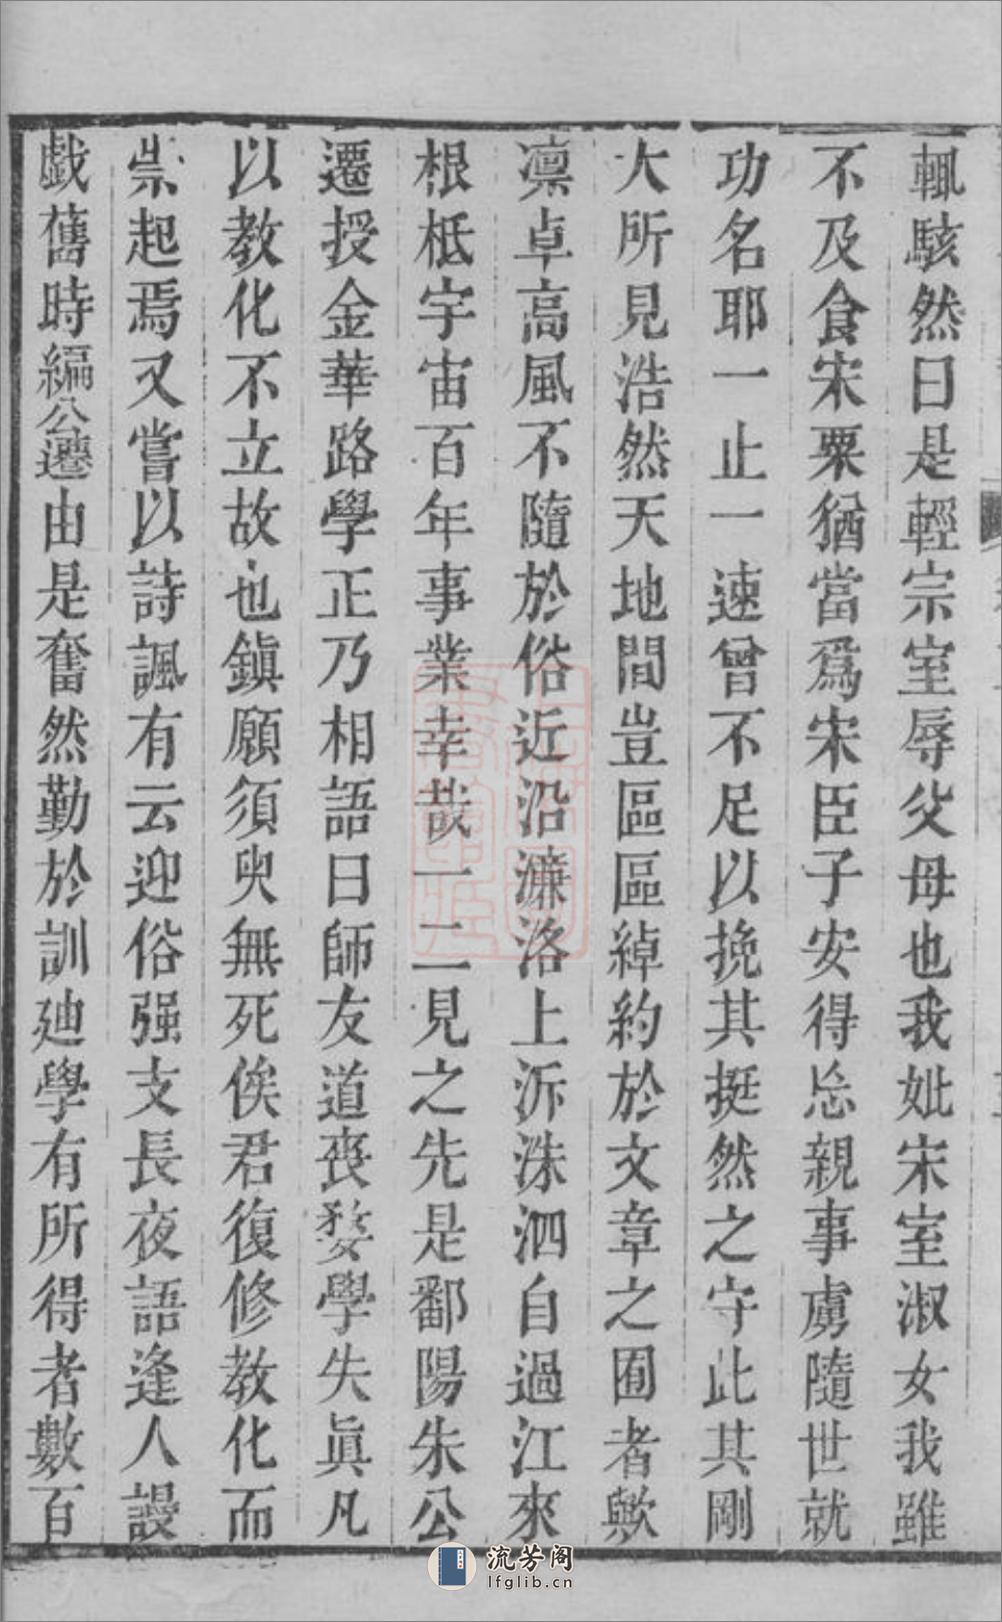 輒駭然曰是輕宗室辱父母也我妣宋室淑女我雖
不及食宋粟猶當爲宋臣子安得忘親事虜隨世就
功名耶一止一速曾不足以挽其挺然之守此其剛
大所見浩然天地間豈區區綽約於文章之囿者歟
凛卓高風不隨於俗近沿濂洛上泝洙泗自過江來
根柢宇宙百年事業幸哉一二見之先是鄱陽朱公
遷授金華路學正乃相語曰師友道喪婺學失眞凡
以教化不立故也鎭願須臾無死俟君復修教化而
祟起焉又嘗以詩諷有云迎俗强支長夜語逢人謾
戱舊時編公遷由是奮然勤於訓廸學有所得者數百
流芳阁
lfglib.cn